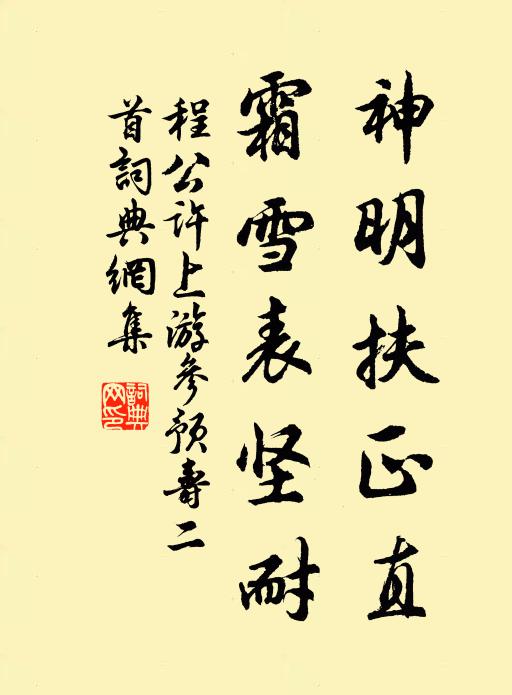 神明扶正直
霜雪表坚耐
程公许上游參预壽二
首詞典網集
詞典
网印